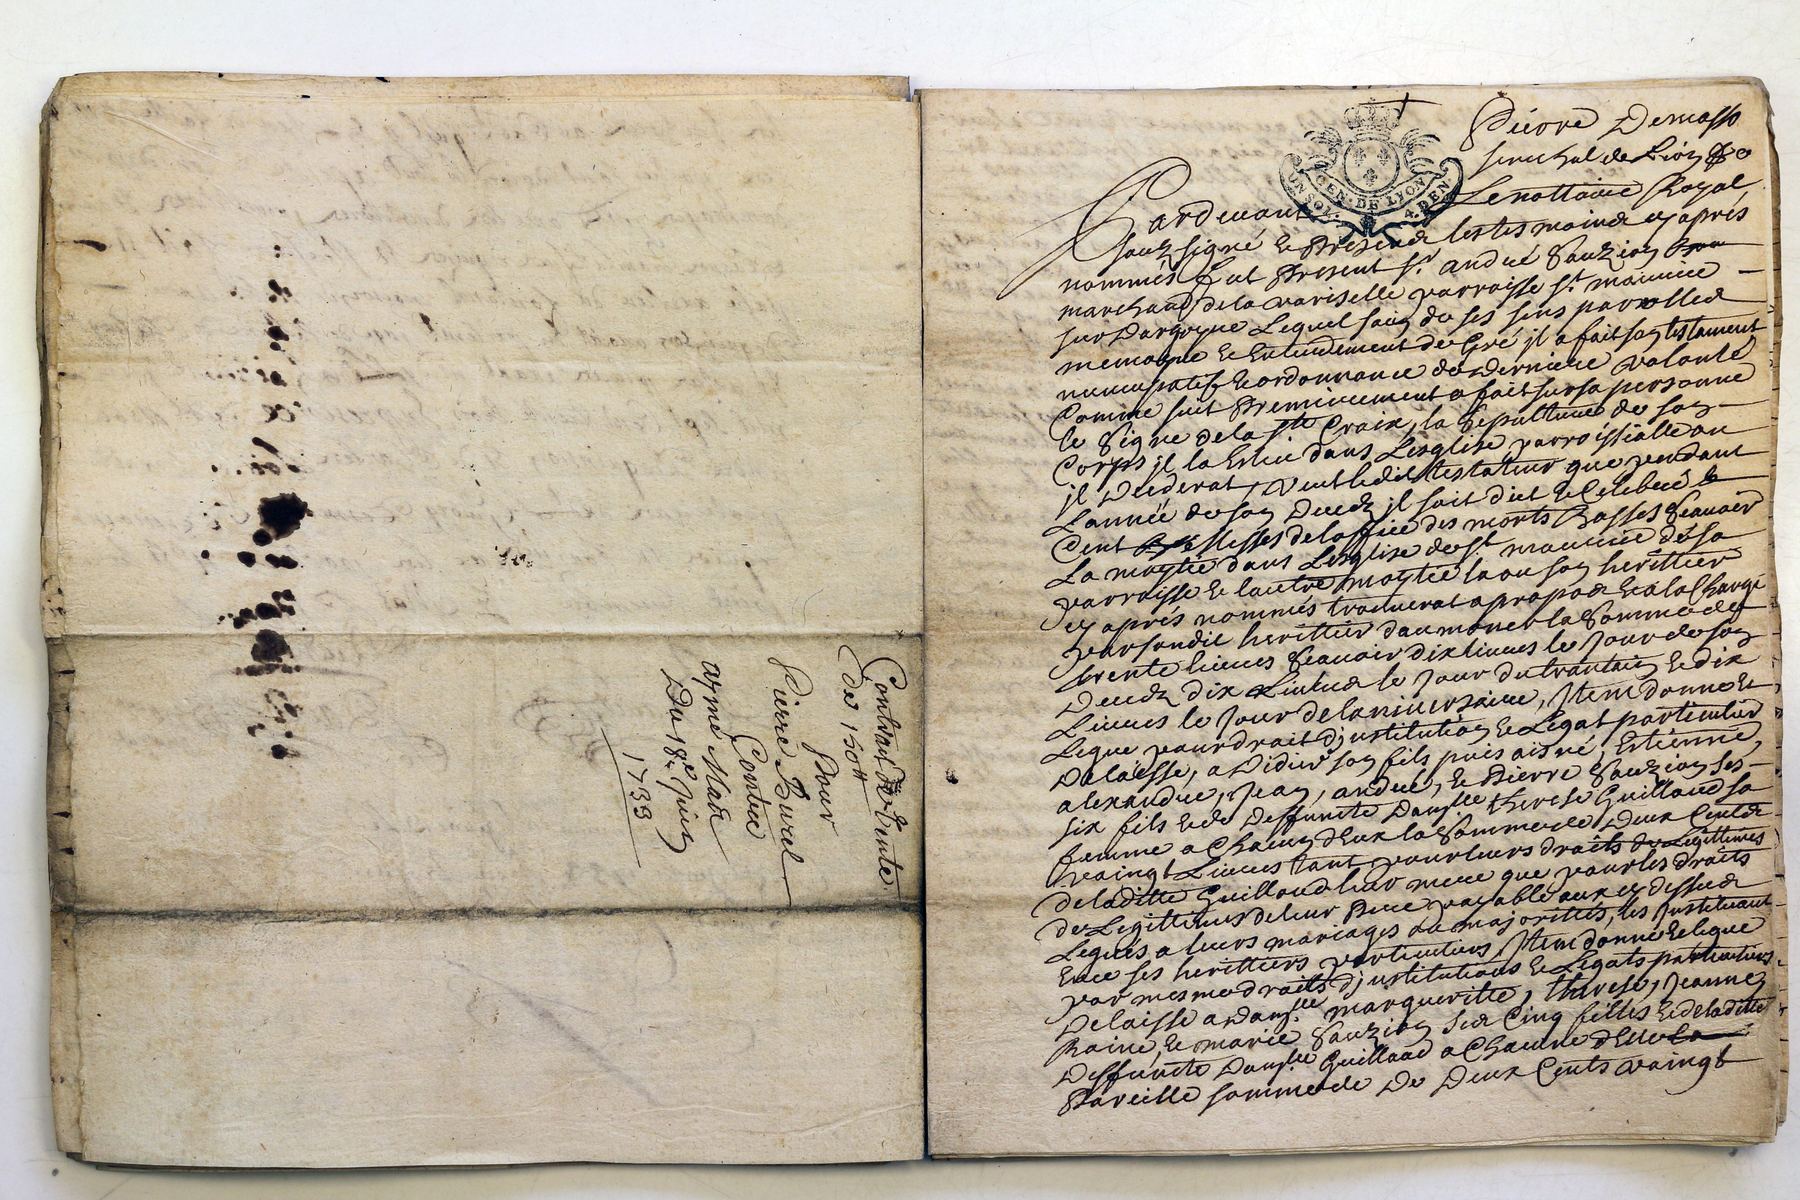 Contract de vente
de 150ll
pour
Pierre Burel
Contre
aymé Mar
Du 18e Juin
1733
UN SOL. GEN. DE LYON 4. DEN.
Pierre Demasso
senechal de Lion &c
Pardevant Le nottaire Royal
soubsigné & presents les tesmoins cy après
nommés fut present Sr andré
marchand de la variselle parroisse St maurice
sur Dargoyre Lequel sain de ses sens parolles
memoyre & Entendement de Gré jl a fait son testament
nuncupatif & ordonnance de Derniere volonté
Comme suit Premierement a fait sur sa personne
le Signe de la Ste Croix, la Sepulture de son
Corps jl la Esleu dans Lesglise parroissialle ou
jl Decederat, veut ledit testateur que pendant
Lannéé de son Decedz jl soit dict & Celebré
Cent Messes de loffice des morts Basses scauoir
La moytié dans Lesglise de St maurice de sa
parroisse & lautre moytié la ou son herittier
cy aprés nommés trouuerat a propos & a la charge
par sondit herittier daumoner la somme de
trente liures scauoir dix liures le jour de son
Decedz dix Liures le jour du trantain & dix
Liures le jour de laniuersaire, Jtem donne &
Legue pour droit djnstitution & Legat particulier
Delaisse, a Didier son fils puis aisné, Estienne,
alexandre, Jean, andré, & Pierre ses
six fils & de Deffuncte Damlle therese Guillaud sa
femme a Chacun deux la somme de Deux Cents
vaingt Liures tant pour leurs droits de Legittimes
de laditte Guillaud leur mere que pour les droits
de Legittimes de leur Pere payable aux cy dessus
Legués a leurs mariages ou majorittés, les Jnstituant
ses herittiers particuliers, Jtem donne & legue
par mesme droits djnstitutions & Legats particuliers
Delaisse a Damlle margueritte, therese, Jeanne,
& marie ses Cinq filles & de laditte
Deffuncte Damlle Guillaud a Chacune delles
Pareille somme de Deux Cents vaingt